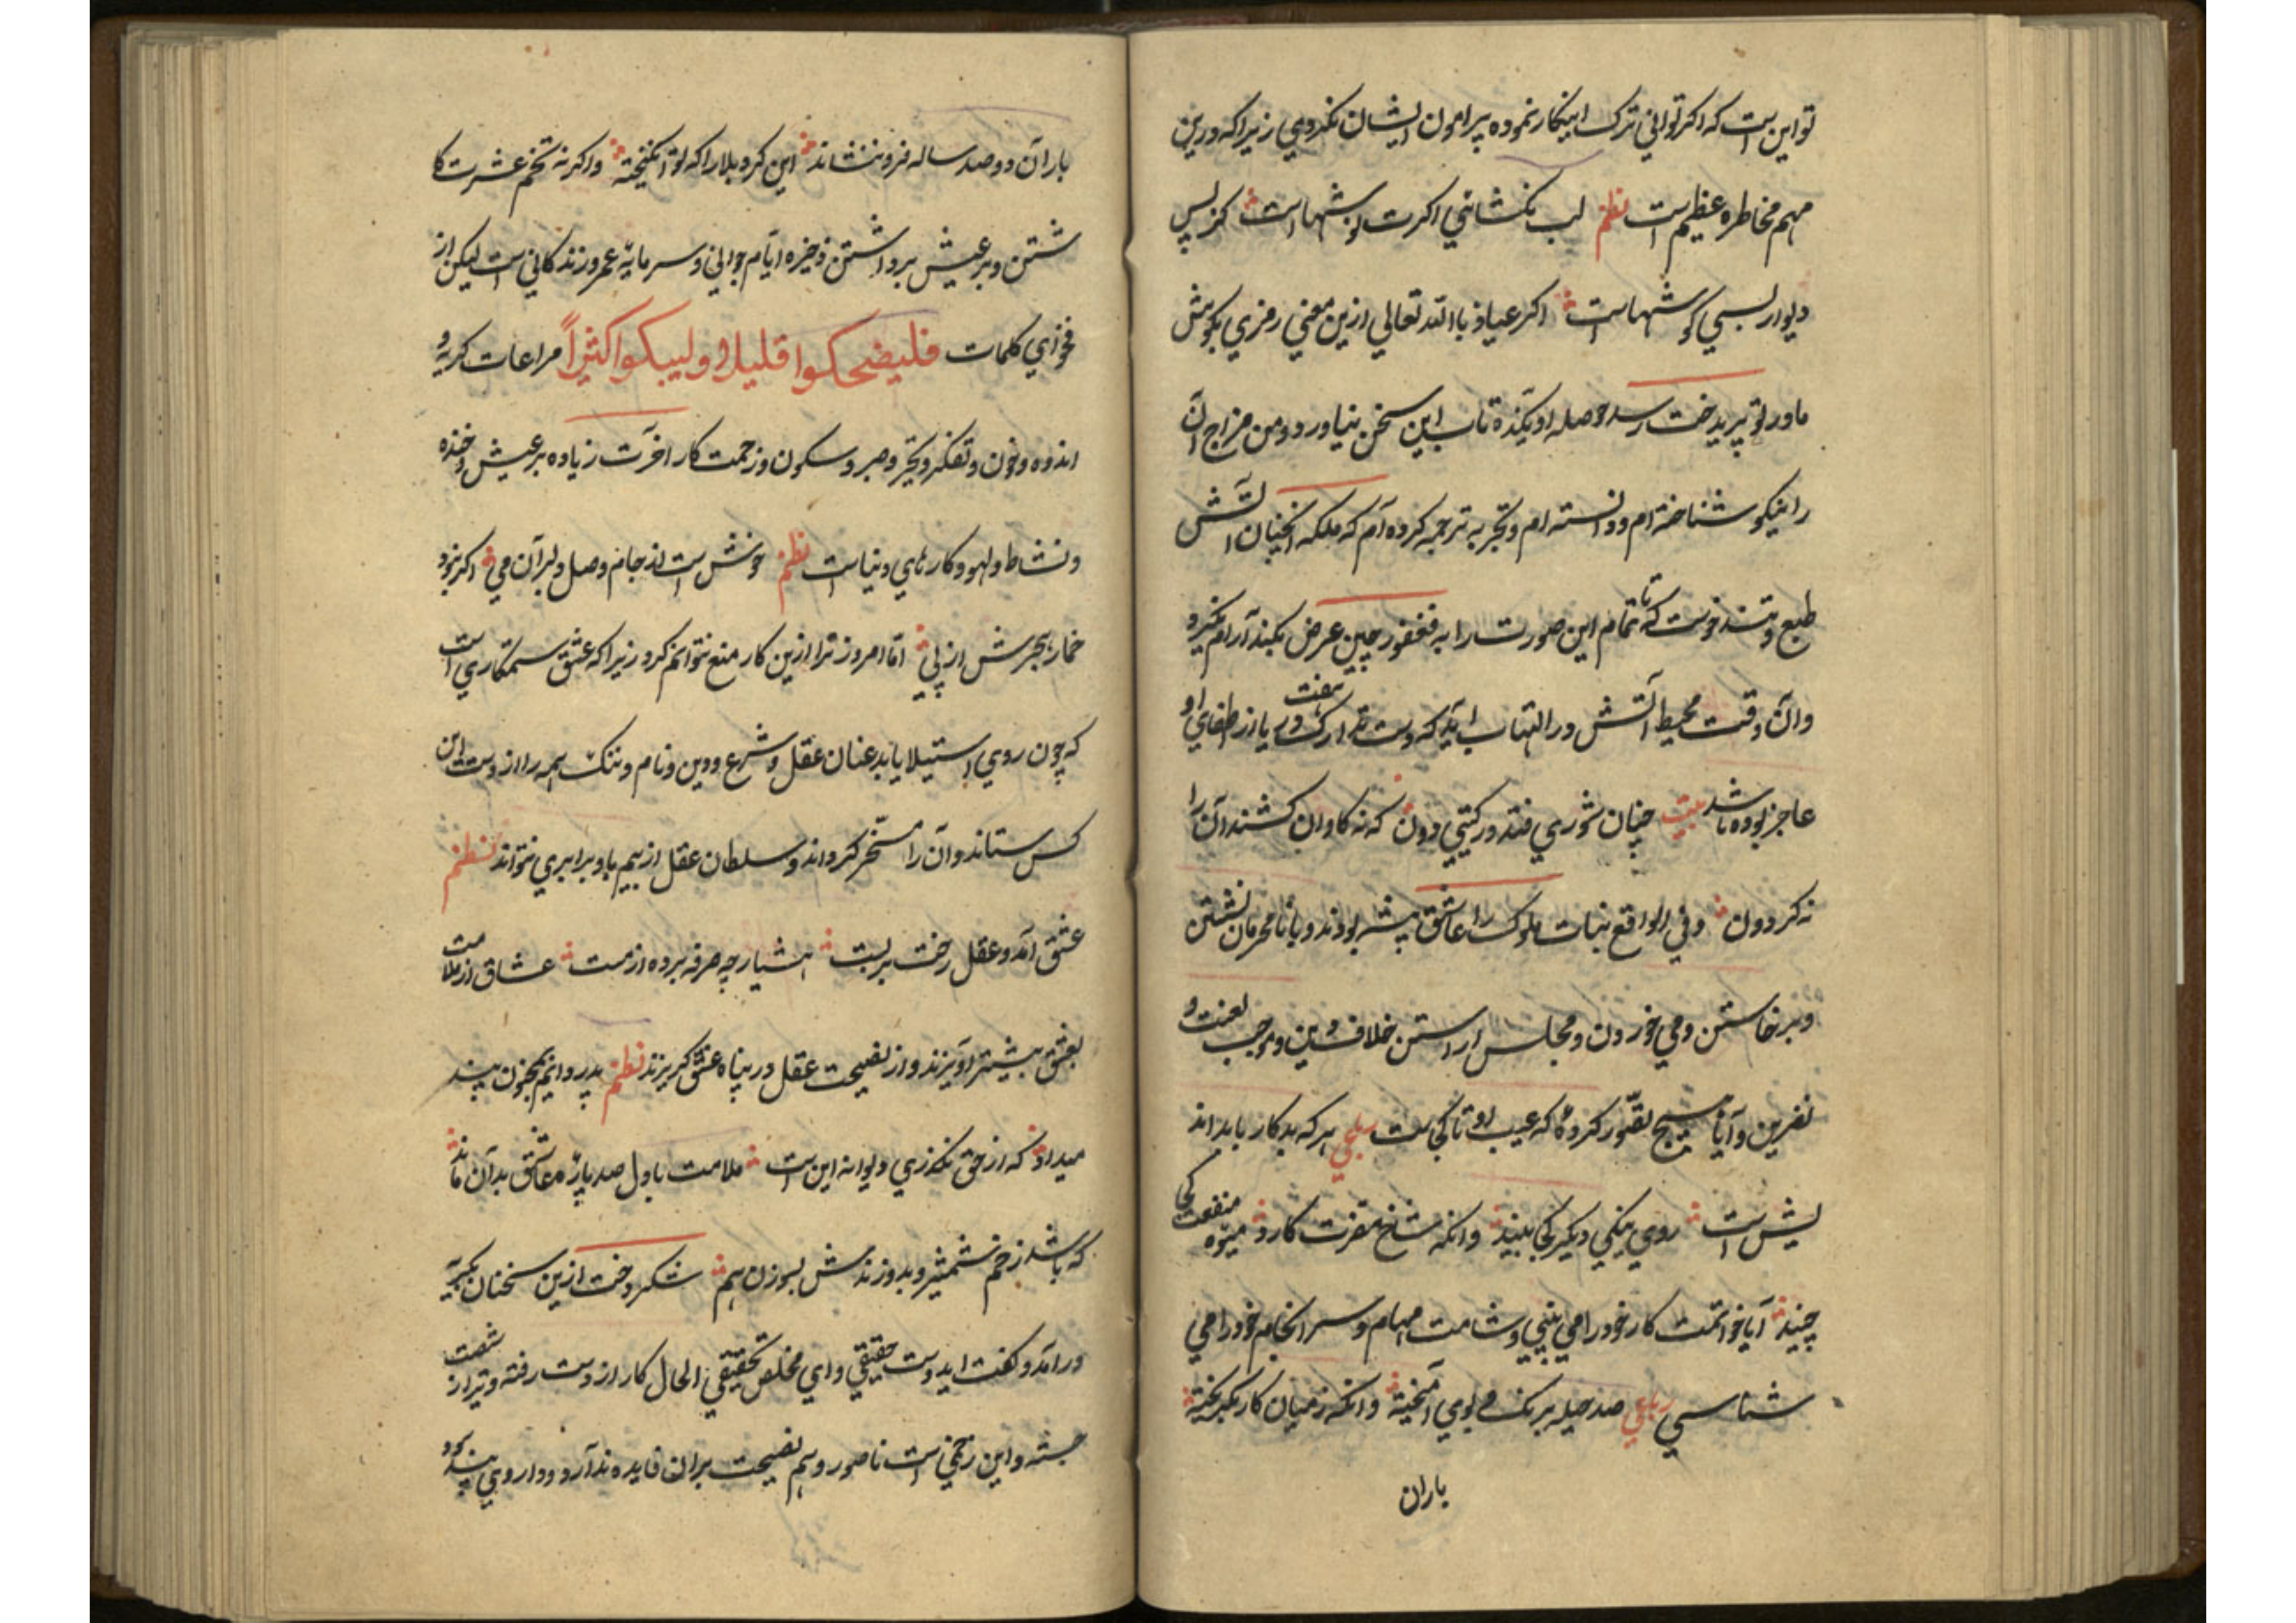 تو این است که اگر توانی ترک اینکار نموده پیرامون ایشان نکردی زیرا که درین
مهم مخاطره عظیم است نظم لب نکشائی اکرت نوشهاست کز پس
دیوار بسی کوشهاست اکر عیاذ باالله تعالی ازین معنی رمزی بکوش
مادر تو پریدخت رسد حوصله او یکذره تاب این سخن نیاورد و من مزاج آن
را نیکو شناخته ام و دانسته ام و تجربه ترجمه کرده ام که ملکه آنچنان آتش
طبع و تند خوست که تا تمام این صورت را به فغفور چین عرض نکند آرام نگیرد
و آن وقت محیط آتش در التهاب آید که دست تدارک هفت دریا از اطفای او
عاجز بوده باشد بیت چنان شوری فتد در کیتی دون که نه کاوان کشند آن را
نه کردون و فی الواقع بنات ملوک را عاشق پیشه بودند و با نامحرمان نشستن
و برخاستن و می خوردن و مجلس آراستن خلاف دین و موجب لعنت و
نفرین و آیا هیچ تصور کرده که عیب او تا کجاست رباعی هر که بد کار یا بد اند
یش است روی نیکی دکر کجا بیند وانکه شاخ مضرت کارد میوه منفعت کجا
چیند آیا خواتمت کار خود را می بینی و شامت مهام و سرانجام خود را می
شناسی رباعی صد حیله برنک و بوی آمیخته وانکه ز میان کار بکریخته
باران
باران دو صد ساله فرو ننشاند این کرد بلا را که تو انکیخته و اکر نه تخم عشرت کا
شتن و بر عیش برداشتن ذخیره ایام جوانی و سرمایه عمر و زندکانی است لیکن از
فحوای کلمات فلیضحکوا قلیلا ولیبکوا کثیراً مراعات کریه و
اندوه و خون و تفکر و تحیر و صبر و سکون و زحمت کار آخرت زیاده بر عیش و خنده
و نشاط و لهو و کارهای دنیاست نظم خوش است از جام وصل دلبر آن می اکر نبود
خمار هجرش از پی اما امروز ترا ازین کار منع نتوانم کرد زیرا که عشق ستمکاری است
که چون روی استیلا یابد عنان عقل و شرع و دین و نام و ننک همه را از دست این
کس ستاند و آن را مسخر کرداند و سلطان عقل از بیم با او برابری نتواند نظم
عشق آمد و عقل رخت بر بست هشیار چه صرفه برده از مست عشاق از ملامت
بعشق بیشتر آویزند و از نصیحت عقل در پناه عشق کریزند نظم پدر دانم بمجنون پند
میداد که از حق نکذری دیوانه این است ملامت با دل صد پاره عاشق بدان ماند
که باشد زخم شمشیر و بدوزندش بسوزن هم شکر دخت ازین سخنان بکریه
در آمد و کفت ای دوست حقیقی و ای مخلص تحقیقی الحال کار از دست رفته و تیر از شصت
جسته و این زخمی است ناصور و هم نصیحت بر آن فایده ندارد و داروی پند سود